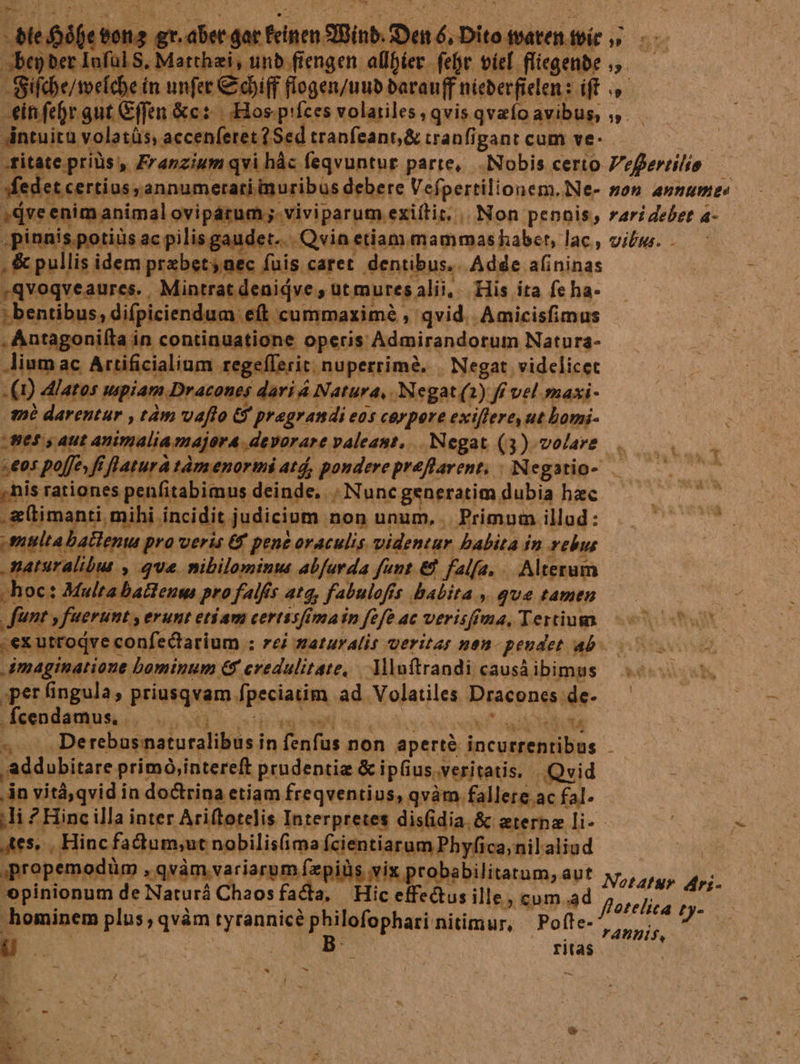 die Höhe von 3 gr. aber gar keinen Wind. Den 6. Dito waren wir „
bey der Insul S. Matthæi, und fiengen allhier sehr viel fliegende „
Fische/welche in unser Schiff flogen/uud darauff niederfielen: ist „
ein sehr gut Essen &c: Hos pisces volatiles, qvis qvæso avibus, „
intuitu volatûs, accenseret? Sed transeant, & transigant cum ve-
ritate priùs, Franzium qvi hâc seqvuntur parte, Nobis certo Vespertilio
sedet certius, annumerari muribus debere Vespertilionem. Ne- non annume-
qve enim animal oviparum; viviparum existit. Non pennis, rari debet a-
pinnis potiùs ac pilis gaudet. Qvin etiam mammas habet, lac, vibus.
& pullis idem præbet; nec suis caret dentibus. Adde asininas
qvoqve aures. Mintrat deniqve, ut mures alii. His ita se ha-
bentibus, dispiciendum est cummaximè, qvid Amicissimus
Antagonista in continuatione operis Admirandorum Natura-
lium ac Artificialium regesserit nuperrimè. Negat videlicet
(1) Alatos uspiam Dracones dari á Natura, Negat (2) si vel maxi-
mè darentur, tàm vasto & prægrandi eos corpore existere, ut homi-
nes, aut animalia majora devorare valeant. Negat (3) volare
eos posse, si staturà tàm enormi atq, pondere præstarent. Negatio-
nis rationes pensitabimus deinde. Nunc generatim dubia hæc
æstimanti mihi incidit judicium non unum. Primum illud:
multa hactenus pro veris & penè oraculis videntur habita in rebus
naturalibus, quæ nihilominus absurda sunt & falsa. Alterum
hoc: Multa hactenus pro falsis atq, fabulosis habita, quæ tamen
sunt, fuerunt, erunt etiam certissima in sese ac verissima. Tertium
ex utroqve consectarium: rei naturalis veritas non pendet ab
imaginatione hominum & credulitate. Illustrandi causâ ibimus
per singula, priusqvam speciatim ad Volatiles Dracones de-
scendamus.
De rebus naturalibus in sensus non apertè incurrentibus
addubitare primó, interest prudentiæ & ipsius veritatis. Qvid
in vitâ, qvid in doctrina etiam freqventius, qvàm fallere ac fal-
li? Hinc illa inter Aristotelis Interpretes dissidia & æternæ li-
tes. Hinc factum, ut nobilissima scientiarum Physica, nil aliud
propemodùm, qvàm variarum sæpiùs vix probabilitatum, aut Notatur Ari-
opinionum de Naturá Chaos facta. Hic effectus ille, cum ad stotelica ty-
hominem plus, qvàm tyrannicè philosophari nitimur. Poste- rannis.
B ritas